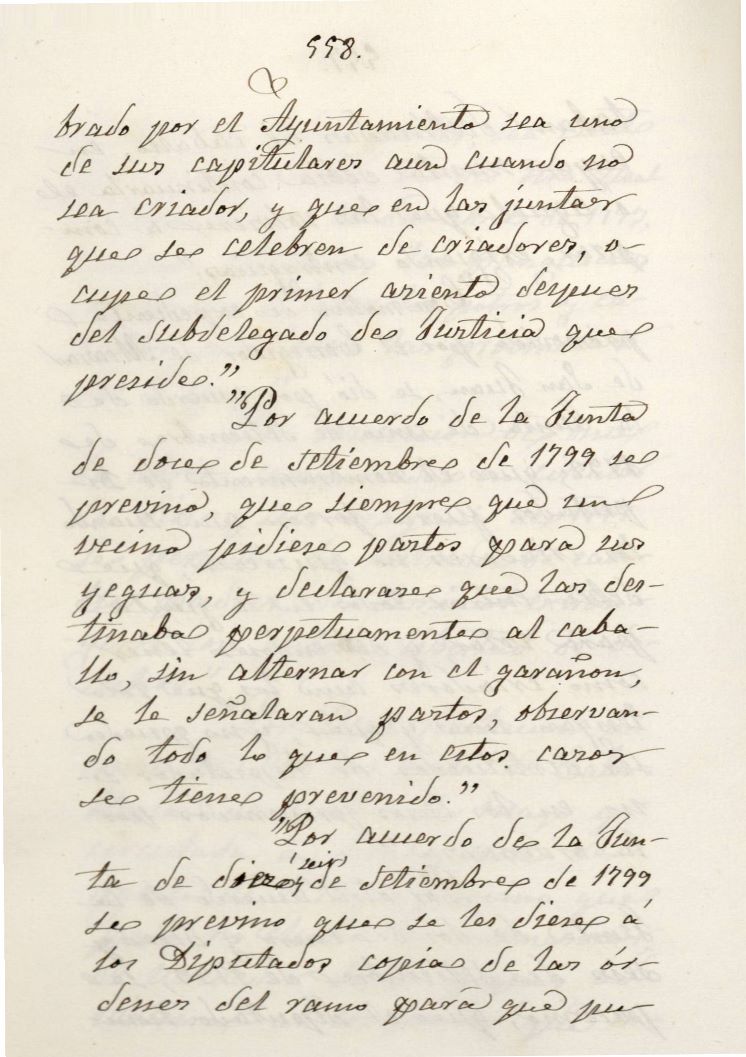 558.
brado por el Ayuntamiento sea uno
de sus capitulares aun cuando no
sea criador, y que en las juntas
que se celebren de criadores, o-
cupe el primer asiento despues
del Subdelegado de Justicia que
preside."
"Por acuerdo de la Junta
de doce de Setiembre de 1799 se
previno, que siempre que un
vecino pidiese pastos para sus
yeguas, y declarase que las des-
tinaba perpetuamente al caba-
llo, sin alternar con el garañon,
se le señalaran pastos, observan-
do todo lo que en estos casos
se tiene prevenido."
"Por acuerdo de la Jun-
ta de diez y seis de Setiembre de 1799
se previno que se les diese á
los Diputados copia de las ór-
denes del ramo para que pu-